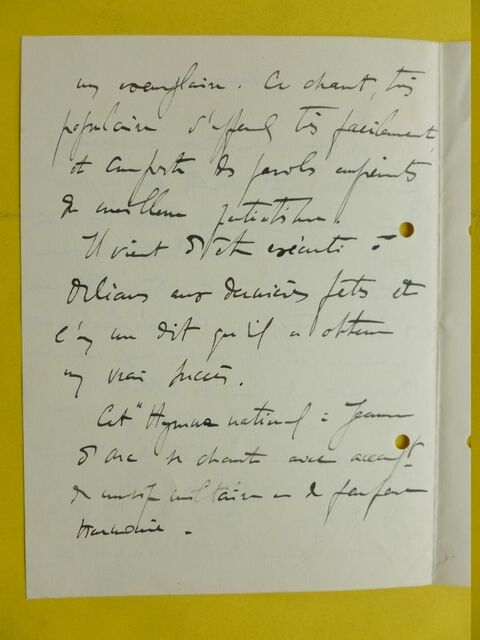 un exemplaire. Ce chant, très
populaire s'apprend très facilement,
et comporte des paroles empreintes
du meilleur patriotisme.
Il vient d'être exécuté à
Orléans aux dernières fêtes et
l'on me dit qu'il a obtenu
un vrai succès.
Cet "Hymne national à Jeanne
d'Arc se chante avec accompt.
de musique militaire ou de fanfare
Harmonie.